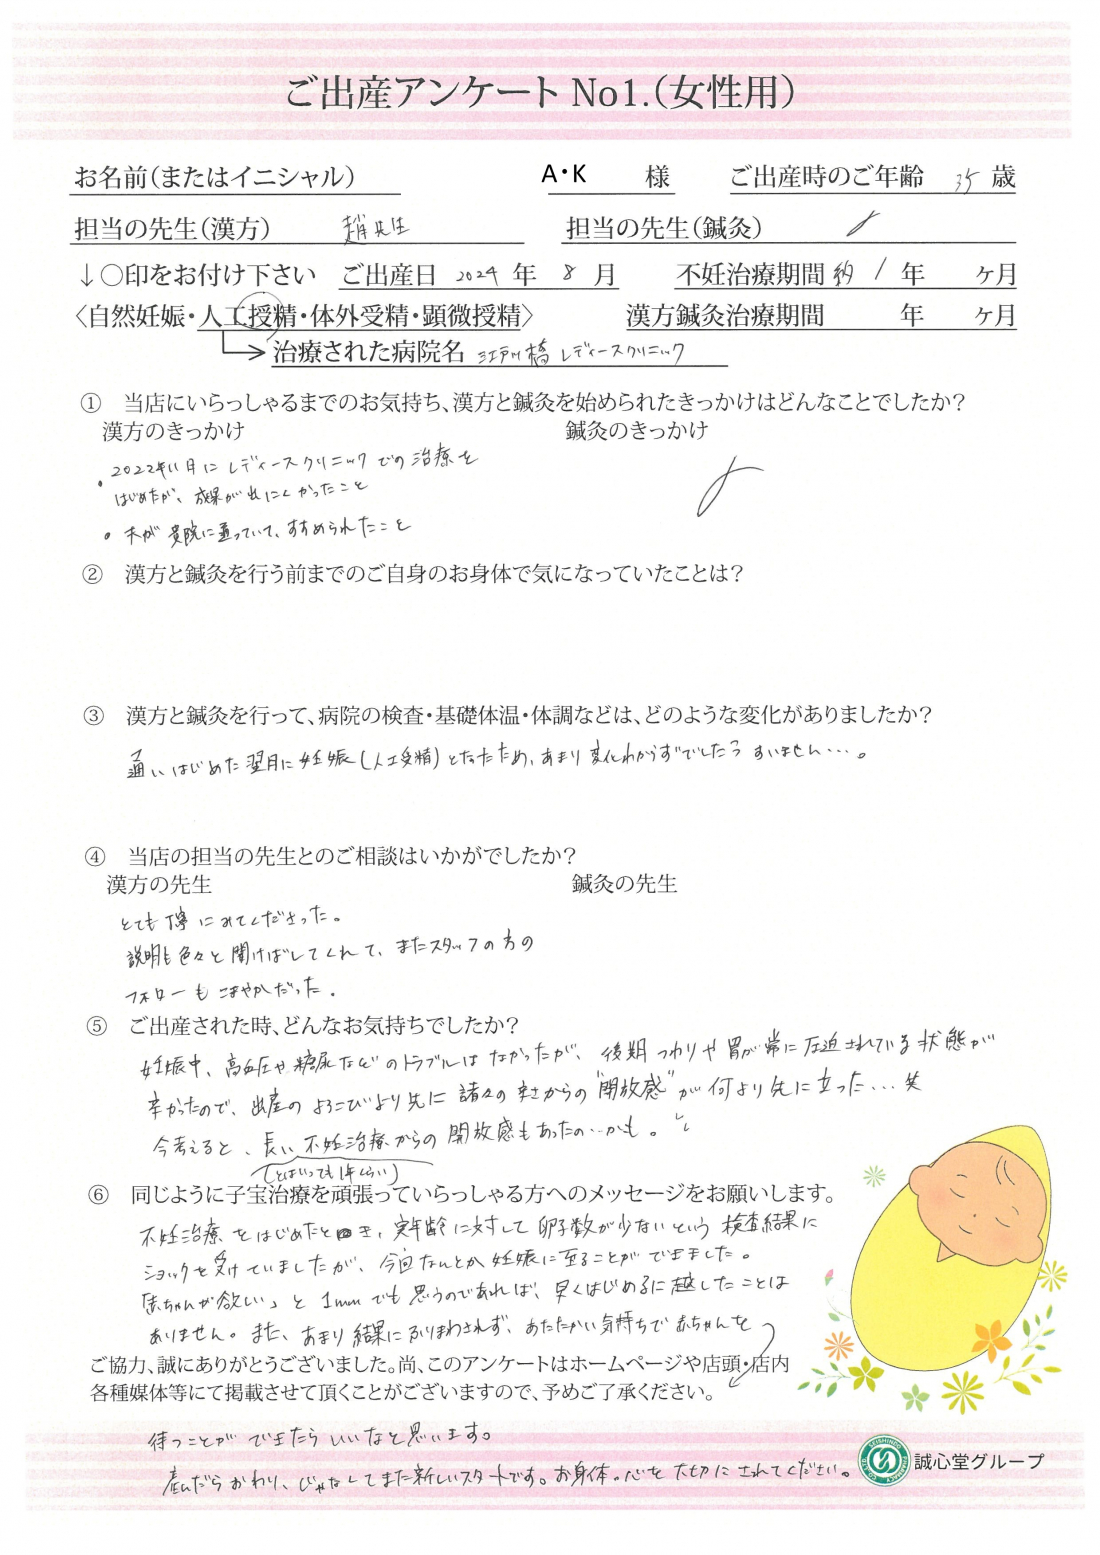 ご出産アンケート No1.（女性用）
お名前（またはイニシャル） A・K 様 ご出産時のご年齢 35 歳
担当の先生（漢方） 趙先生 担当の先生（鍼灸）
↓〇印をお付け下さい ご出産日 2024 年 8 月 不妊治療期間 約 1 年 ヶ月
〈自然妊娠・人工授精・体外受精・顕微授精〉 漢方鍼灸治療期間 年 ヶ月
治療された病院名 江戸川橋レディースクリニック
① 当店にいらっしゃるまでのお気持ち、漢方と鍼灸を始められたきっかけはどんなことでしたか？
漢方のきっかけ 鍼灸のきっかけ
・2022年11月にレディースクリニックでの治療を
はじめたが、成果が出にくかったこと
・夫が貴院に通っていて、すすめられたこと
② 漢方と鍼灸を行う前までのご自身のお身体で気になっていたことは？
③ 漢方と鍼灸を行って、病院の検査・基礎体温・体調などは、どのような変化がありましたか？
通いはじめた翌月に妊娠（人工受精）となったため、あまり変化わからずでした。すいません…。
④ 当店の担当の先生とのご相談はいかがでしたか？
漢方の先生 鍼灸の先生
とても丁寧にみてくださった。
説明も色々と聞けばしてくれて、またスタッフの方の
フォローもこまやかだった。
⑤ ご出産された時、どんなお気持ちでしたか？
妊娠中、高血圧や糖尿などのトラブルはなかったが、後期つわりや胃が常に圧迫されている状態が
辛かったので、出産のよろこびより先に諸々の辛さからの"開放感"が何より先に立った…笑
今考えると、長い不妊治療からの開放感もあったの…かも。
（とはいっても1年くらい）
⑥ 同じように子宝治療を頑張っていらっしゃる方へのメッセージをお願いします。
不妊治療をはじめたとき、実年齢に対して卵子数が少ないという検査結果に
ショックを受けていましたが、今回なんとか妊娠に至ることができました。
「赤ちゃんが欲しい」と1mmでも思うのであれば、早くはじめるに越したことは
ありません。また、あまり結果にふりまわされず、あたたかい気持ちで赤ちゃんを
ご協力、誠にありがとうございました。尚、このアンケートはホームページや店頭・店内
各種媒体等にて掲載させて頂くことがございますので、予めご了承ください。
待つことができたらいいなと思います。
産んだらおわり、じゃなくてまた新しいスタートです。お身体・心を大切にされてください。
誠心堂グループ